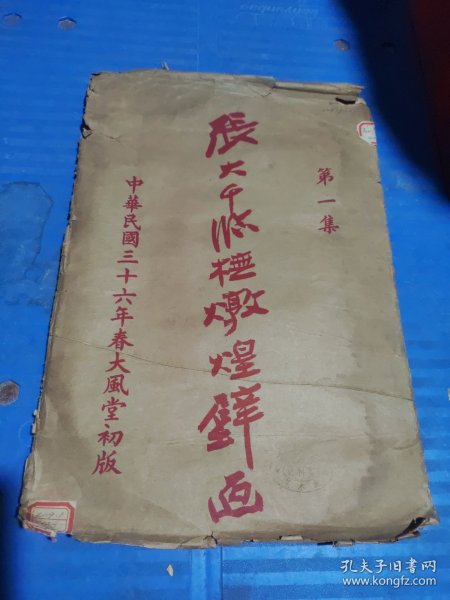 第一集
張大千臨橅燉煌壁画
中華民國三十六年春大風堂初版
孔夫子旧书网
www.kongfz.com